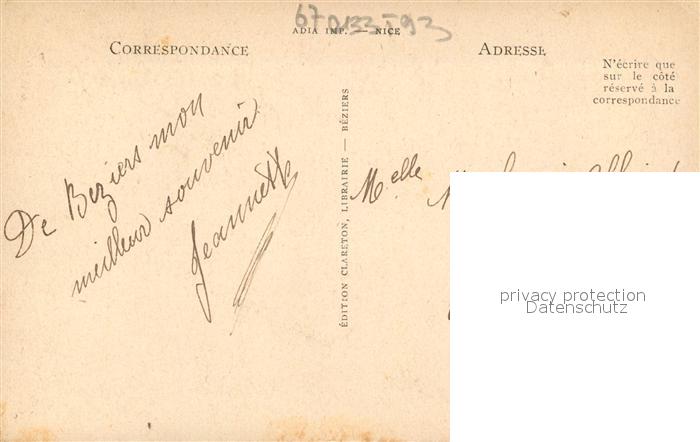 67 0133593
ADIA IMP. — NICE
CORRESPONDANCE
ADRESSE
N'écrire que
sur le côté
réservé à la
correspondance
De Beziers mon
meilleur souvenir
Jeannette
ÉDITION CLARETON, LIBRAIRIE — BÉZIERS
Melle
privacy protection
Datenschutz